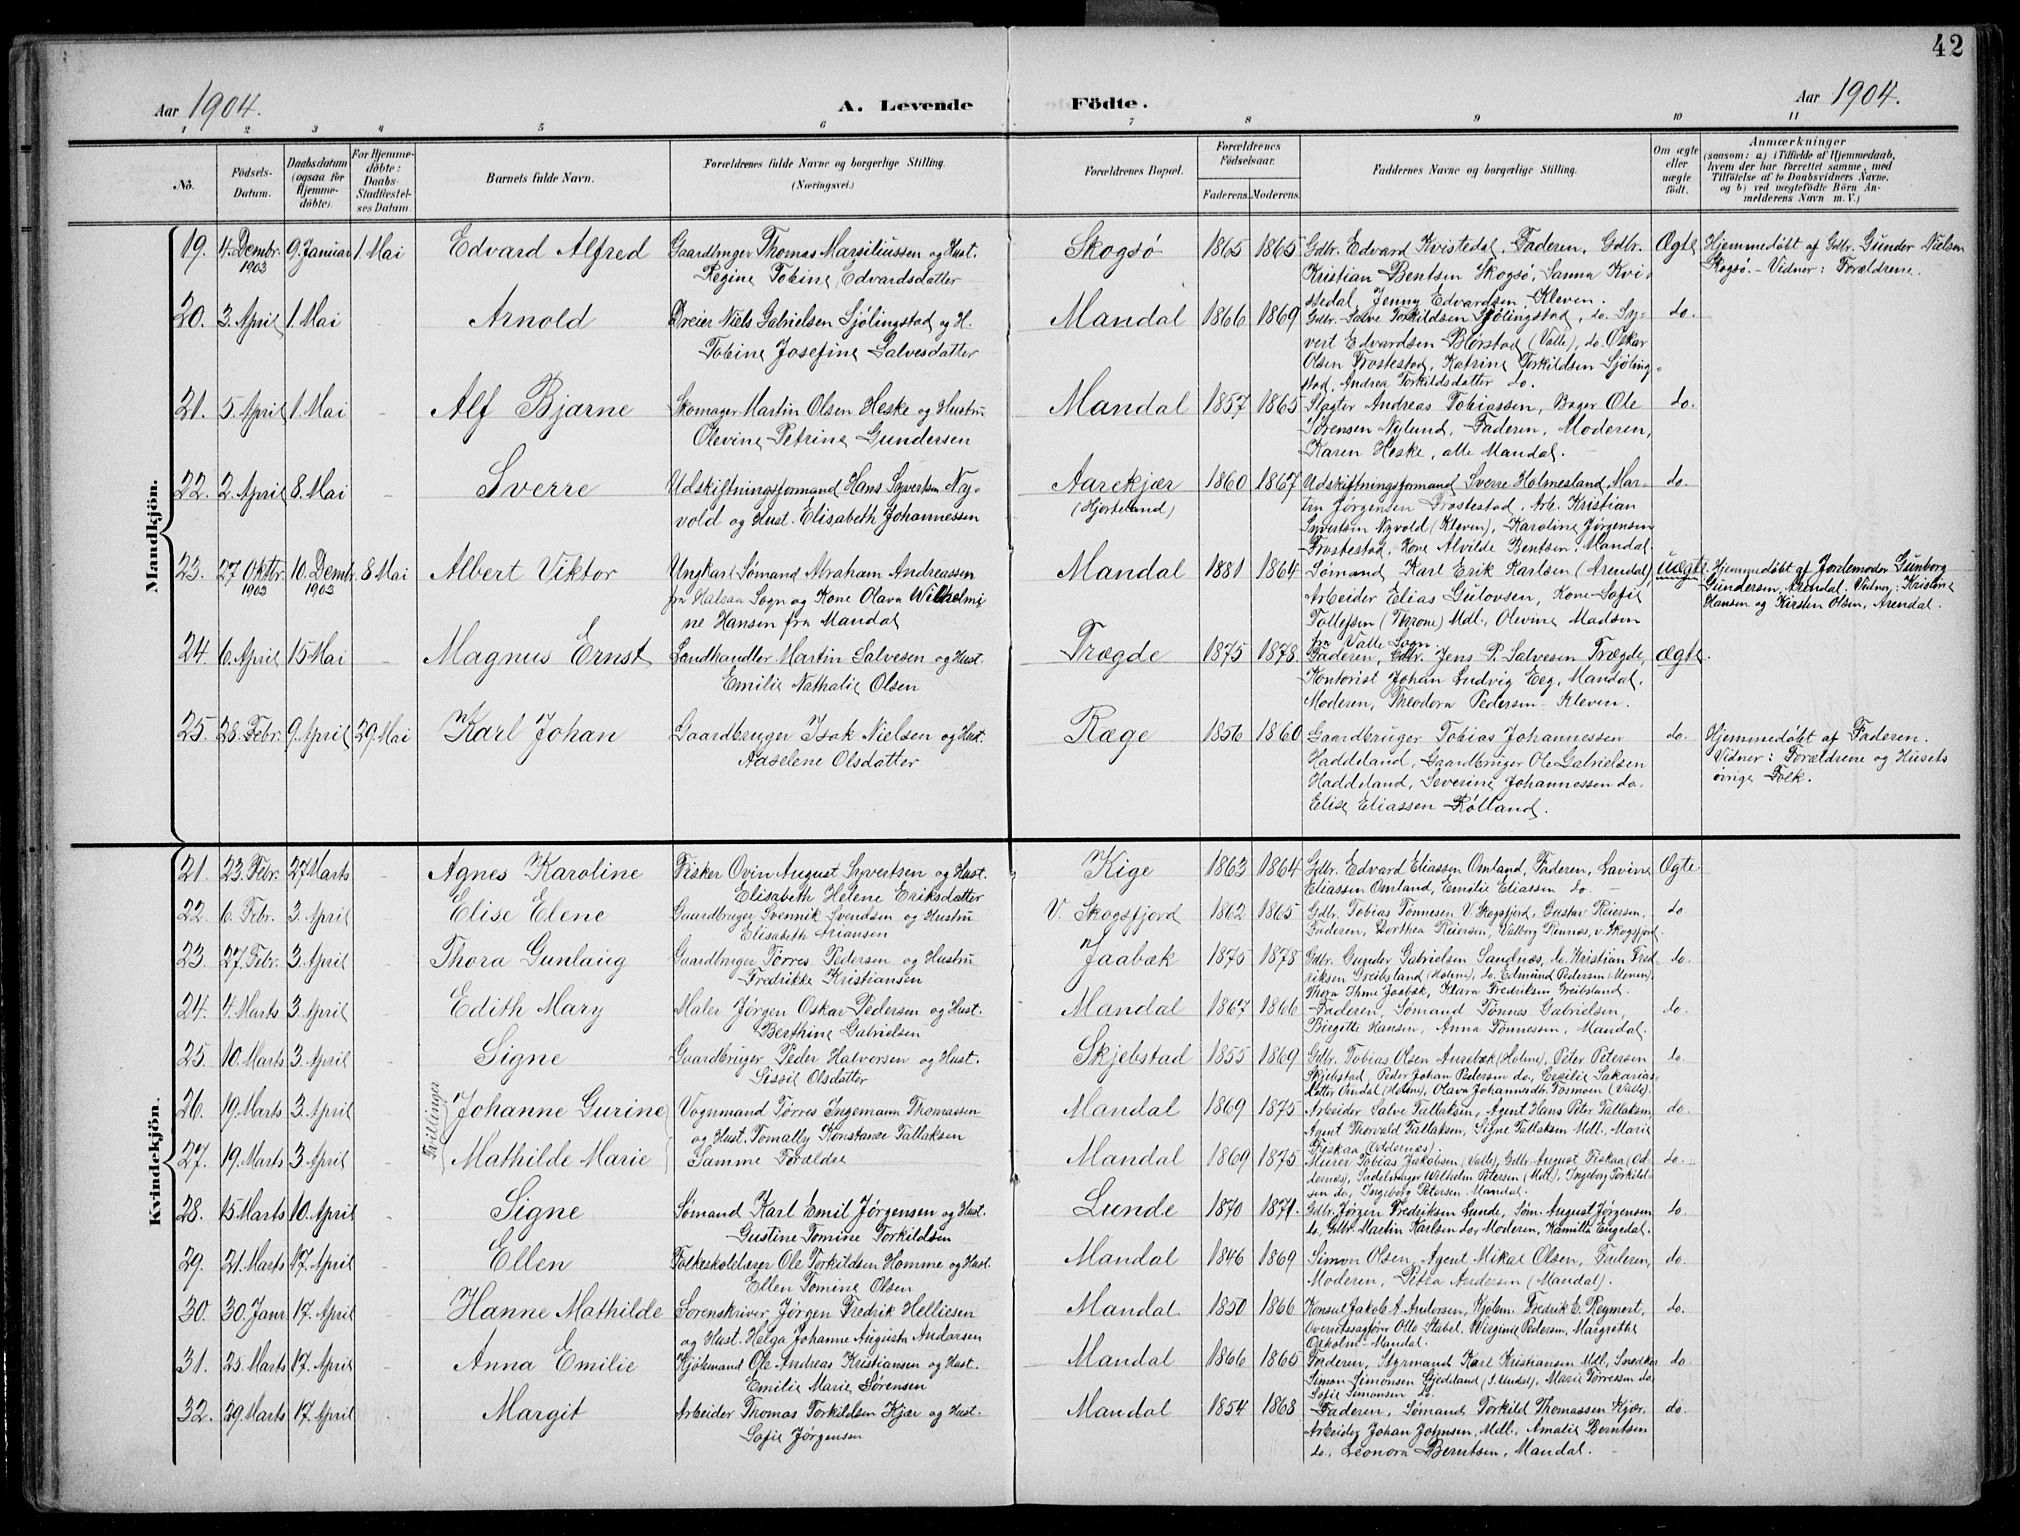 42
Aar 1904. A. Levende Födte. Aar 1904.
1 2 3 4 5 6 7 8 9 10 11
No. Födsels-Datum. Daabsdatum (ogsaa for Hjemme-döbte). For Hjemme-döbte: Daabs-Stadfæstel-ses Datum. Barnets fulde Navn. Forældrenes fulde Navne og borgerlige Stilling. (Næringsvei.) Forældrenes Bopæl. Forældrenes Födselsaar. Faderens. Moderens. Faddernes Navne og borgerlige Stilling. Om ægte eller uægte födt. Anmærkninger (saasom: a) i Tilfælde af Hjemmedaab, hvem der har forrettet samme, med Tilföielse af to Daabsvidners Navne, og b) ved uægtefödte Börn An-melderens Navn m. V.)
Mandkjön.
19. 4. Dembr. 1903 9. Januar 1. Mai Edvard Alfred Gaardbruger Thomas Marsiliussen og Hust. Skogsø 1865 1865 Gdbr. Edvard Kvistedal, Faderen, Gdbr. Ægte Hjemmedøbt af Gdbr. Gunder Nielsen
Regine Tobine Edvardsdatter Kristian Bentsen Skogsø, Sanna Kvi- Skogsø. - Vidner: Forældrene.
stedal, Jenny Edvardsen Kleven.
20. 3. April 1. Mai - Arnold Dreier Niels Gabrielsen Sjølingstad og H. Mandal 1866 1869 Gdbr. Salve Torkildsen Sjølingstad, do. Sy- do.
Tobine Josefine Salvesdatter vert Edvardsen Børstad (Valle), do. Oskar
Olsen Frostestad, Katrine Torkildsen Sjøling-
stad, Andrea Torkildsdatter do.
21. 5. April 1. Mai - Alf Bjarne Skomager Martin Olsen Heske og Hustru Mandal 1857 1865 Slagter Andreas Tobiassen, Bager Ole do.
Olevine Petrine Gundersen Sørensen Nylund, Faderen, Moderen,
Karen Heske, alle Mandal.
22. 2. April 8. Mai - Sverre Udskiftningsformand Hans Syvertsen Ny- Aarekjær 1860 1867 Udskiftningsformand Sverre Holmesland, Mar- do.
vold og Hust. Elisabeth Johannessen (Hjorteland) tin Jørgensen Frostestad, Arb. Kristian
Syvertsen Nyvold (Kleven), Karoline Jørgensen
Frostestad, Kone Alvilde Bentsen, Mandal
23. 27 Oktbr. 1903 10. Dembr. 1903 8 Mai Albert Viktor Ungkarl Sømand Abraham Andreassen Mandal 1881 1864 Sømand Karl Erik Karlsen (Arendal), Uægte Hjemmedøbt af Jordemoder Gunborg
fra Halsaa Sogn og Kone Olava Wilhelmi Arbeider Elias Geilovsen, Kone Sofie Gundersen, Arendal. Vidner: Kristine
ne Hansen fra Mandal Tollefsen (Throne) Mdl., Olevine Madsen Hansen og Kirsten Olsen, Arendal.
fra Valle Sogn.
24. 6. April 15 Mai - Magnus Ernst Landhandler Martin Salvesen og Hust. Trægde 1875 1878 Faderen, Gdbr. Jens P. Salvesen Trægde, ægte.
Emilie Nathalie Olsen Kontorist Johan Ludvig Eeg, Mandal,
Moderen, Theodora Pedersen Kleven.
25. 28. Febr. 9. April 29. Mai Karl Johan Gaardbruger Isak Nielsen og Hust. Ræge 1856 1860 Gaardbruger Tobias Johannessen do. Hjemmedøbt af Faderen.
Aaselene Olsdatter Haddeland, Gaardbruger Ole Gabrielsen Vidner: Forældrene og Husets
Haddeland, Severine Johannessen do. øvrige Folk.
Elise Eliassen Rølland.
Kvindekjön.
21. 23. Febr. 27 Marts - Agnes Karoline Fisker Ovin August Syvertsen og Hust. Kige 1863 1864 Gdbr. Edvard Eliassen Omland, Faderen, Lavine Ægte
Elisabeth Helene Eriksdatter Eliassen Omland, Emilie Eliassen do.
22. 6. Febr. 3. April - Elise Elene Gaardbruger Svennik Svendsen og Hustru V. Skogsfjord 1862 1865 Gdbr. Tobias Tønnesen V. Skogsfjord, Gustav Reiersen, do
Elisabeth Ariansen Faderen, Dorthea Reiersen, Valborg Rinnes, v. Skogsfjord.
23. 27. Febr. 3. April - Thora Gunlaug Gaardbruger Tørres Pedersen og Hustru Jaabæk 1875 1878 Gdbr. Gunder Gabrielsen Sandnæs, do. Kristian Fred do.
Fredrikke Kristiansen riksen Greibsland (Holme), do. Edmund Pedersen (Uleven)
Thora Ihme Jaabæk, Klara Fredriksen Greibsland.
24. 4. Marts 3. April - Edith Mary Maler Jørgen Oskar Pedersen og Hust. Mandal 1867 1866 Faderen, Sømand Tønnes Gabrielsen, do.
Berthine Gabrielsen Birgitte Hansen, Anna Tønnessen, Mandal.
25. 10. Marts 3. April - Signe Gaardbruger Peder Halvorsen og Hust. Skjebstad 1855 1869 Gdbr. Tobias Olsen Aurebæk (Holme), Peter Petersen do
Sissil Olsdatter Skjebstad, Peder Johan Pedersen do, Cecilie Sakarias-
datter Omdal (Holme), Olava Johannesdtr. Tonmoen (Valle).
Tvillinger
26. 19. Marts 3. April - Johanne Gurine Vognmand Tørres Ingemann Thomassen Mandal 1869 1875 Arbeider Salve Tallaksen, Agent Hans Peter Tallaksen, do.
og Hust. Tomally Konstanse Tallaksen Agent Thorvald Tallaksen, Signe Tallaksen Mdl., Marie
Fiskaa (Oddernes).
27. 19. Marts 3. April - Mathilde Marie Samme Forældre Mandal 1869 1875 Murer Tobias Jakobsen (Valle), Gdbr. August Fiskaa (Od do.
dernes), Sadelmager Wilhelm Petersen (Mdl), Ingeborg Torkild-
sen do, Ingeborg Petersen Mandal.
28. 15. Marts 10. April - Signe Sømand Karl Emil Jørgensen og Hust. Lunde 1870 1871. Gdbr. Jørgen Fredriksen Lunde, Søm. August Jørgensen do
Gustine Tomine Torkildsen do, Gdbr. Martin Karlsen do, Moderen, Kamilla Engedal.
29. 21. Marts 17. April - Ellen Folkeskolelærer Ole Torkildsen Homme og Hust. Mandal 1846 1869 Simon Olsen, Agent Mikal Olsen, Faderen, do
Ellen Tomine Olsen Moderen, Petra Andersen (Mandal).
30. 30. Janr. 17. April - Hanne Mathilde Sorenskriver Jørgen Fredrik Helliesen Mandal 1850 1866 Konsul Jakob A. Andorsen, Kjøbm. Fredrik E. Reymert, do.
og Hust. Helga Johanne Augusta Andorsen Overretssagfører Otto Stabel, Virginie Pedersen, Margrethe
Mandal.
31. 25. Marts 17. April - Anna Emilie Kjøbmand Ole Andreas Kristiansen og Hust. Mandal 1866 1865 Faderen, Styrmand Karl Kristiansen Mdl., Snedker do
Emilie Marie Sørensen Simon Simonsen Gjeddeland (S. Undal), Marie Tørresen do
Sofie Simonsen do.
32. 29. Marts 17. April - Margit Arbeider Thomas Torkildsen Kjær og Hust. Mandal 1854 1868 Faderen, Sømand Torkild Thomassen Kjær, do.
Sofie Jørgensen Arbeider Johan Johnsen, Mdl., Amalie Berntsen
do., Leonora Berntsen, Mandal.